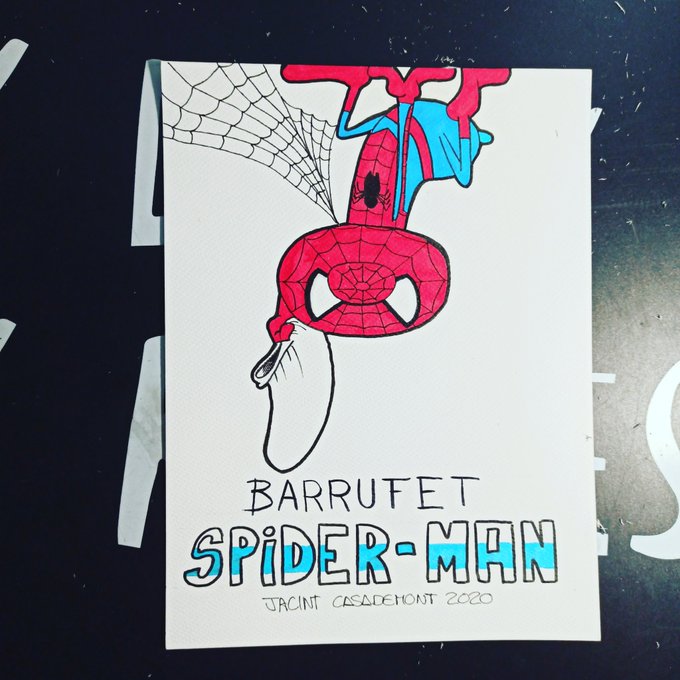 BARRUFET
SPiDER-MAN
JACINT CASADEMONT 2020